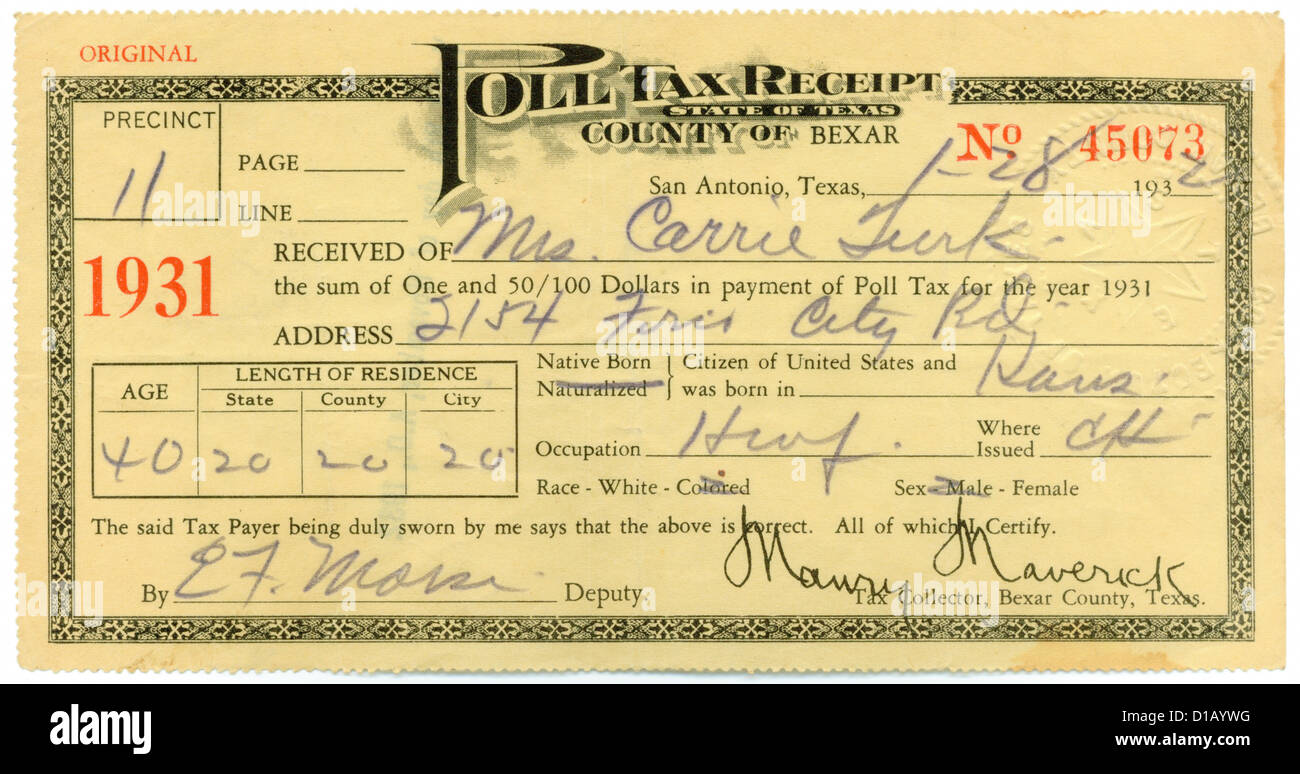 ORIGINAL
POLL TAX RECEIPT
STATE OF TEXAS
COUNTY OF BEXAR
No 45073
PRECINCT
11
PAGE
LINE
San Antonio, Texas, 1-28 1932
1931
RECEIVED OF Mrs. Carrie Turk
the sum of One and 50/100 Dollars in payment of Poll Tax for the year 1931
ADDRESS 2154 City Rd
Native Born
Naturalized
Citizen of United States and
was born in Kans.
AGE
LENGTH OF RESIDENCE
State County City
40 20 20 20
Occupation Hwf.
Where
Issued CH
Race - White - Colored Sex - Male - Female
The said Tax Payer being duly sworn by me says that the above is correct. All of which I Certify.
By E F. Morse Deputy.
Maury Maverick
Tax Collector, Bexar County, Texas.
alamy
Image ID: D1AYWG
www.alamy.com